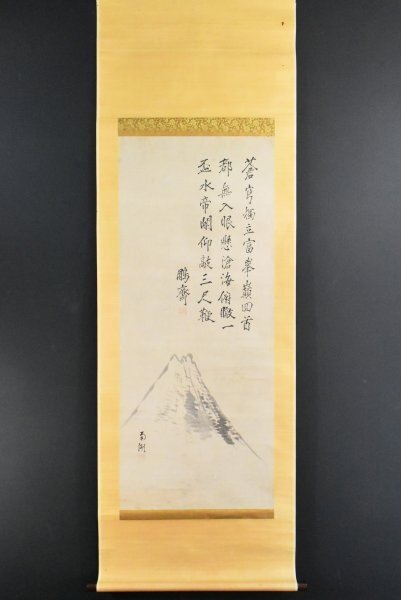 蒼穹獨立富峯巔回首
都無入眼懸滄海俯瞰一
盃水帝閽仰敲三尺鞭
鵬齋
南湖